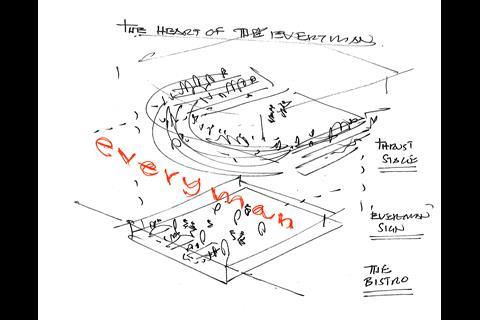 THE HEART OF THE EVERYMAN
everyman
THRUST
STAGE
'EVERYMAN'
SIGN
THE
BISTRO